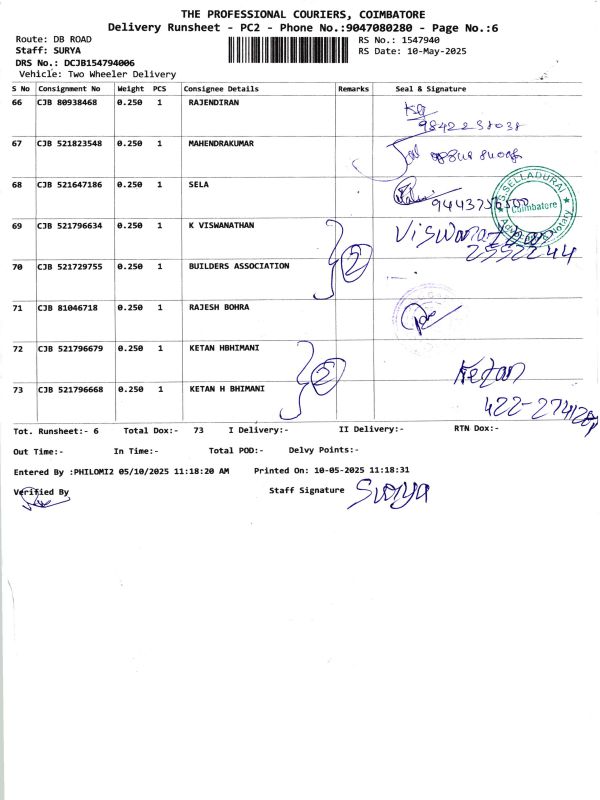 THE PROFESSIONAL COURIERS, COIMBATORE
Delivery Runsheet - PC2 - Phone No.:9047080280 - Page No.:6
Route: DB ROAD RS No.: 1547940
Staff: SURYA RS Date: 10-May-2025
DRS No.: DCJB154794006
Vehicle: Two Wheeler Delivery
S No Consignment No Weight PCS Consignee Details Remarks Seal & Signature
66 CJB 80938468 0.250 1 RAJENDIRAN
9842238038
67 CJB 521823548 0.250 1 MAHENDRAKUMAR
68 CJB 521647186 0.250 1 SELA
S.SELLADURAI
Coimbatore
Notary
69 CJB 521796634 0.250 1 K VISWANATHAN
2
2552244
70 CJB 521729755 0.250 1 BUILDERS ASSOCIATION
71 CJB 81046718 0.250 1 RAJESH BOHRA
72 CJB 521796679 0.250 1 KETAN HBHIMANI
2 Ketan
73 CJB 521796668 0.250 1 KETAN H BHIMANI
Tot. Runsheet:- 6 Total Dox:- 73 I Delivery:- II Delivery:- RTN Dox:-
Out Time:- In Time:- Total POD:- Delvy Points:-
Entered By :PHILOMI2 05/10/2025 11:18:20 AM Printed On: 10-05-2025 11:18:31
Verified By Staff Signature Surya